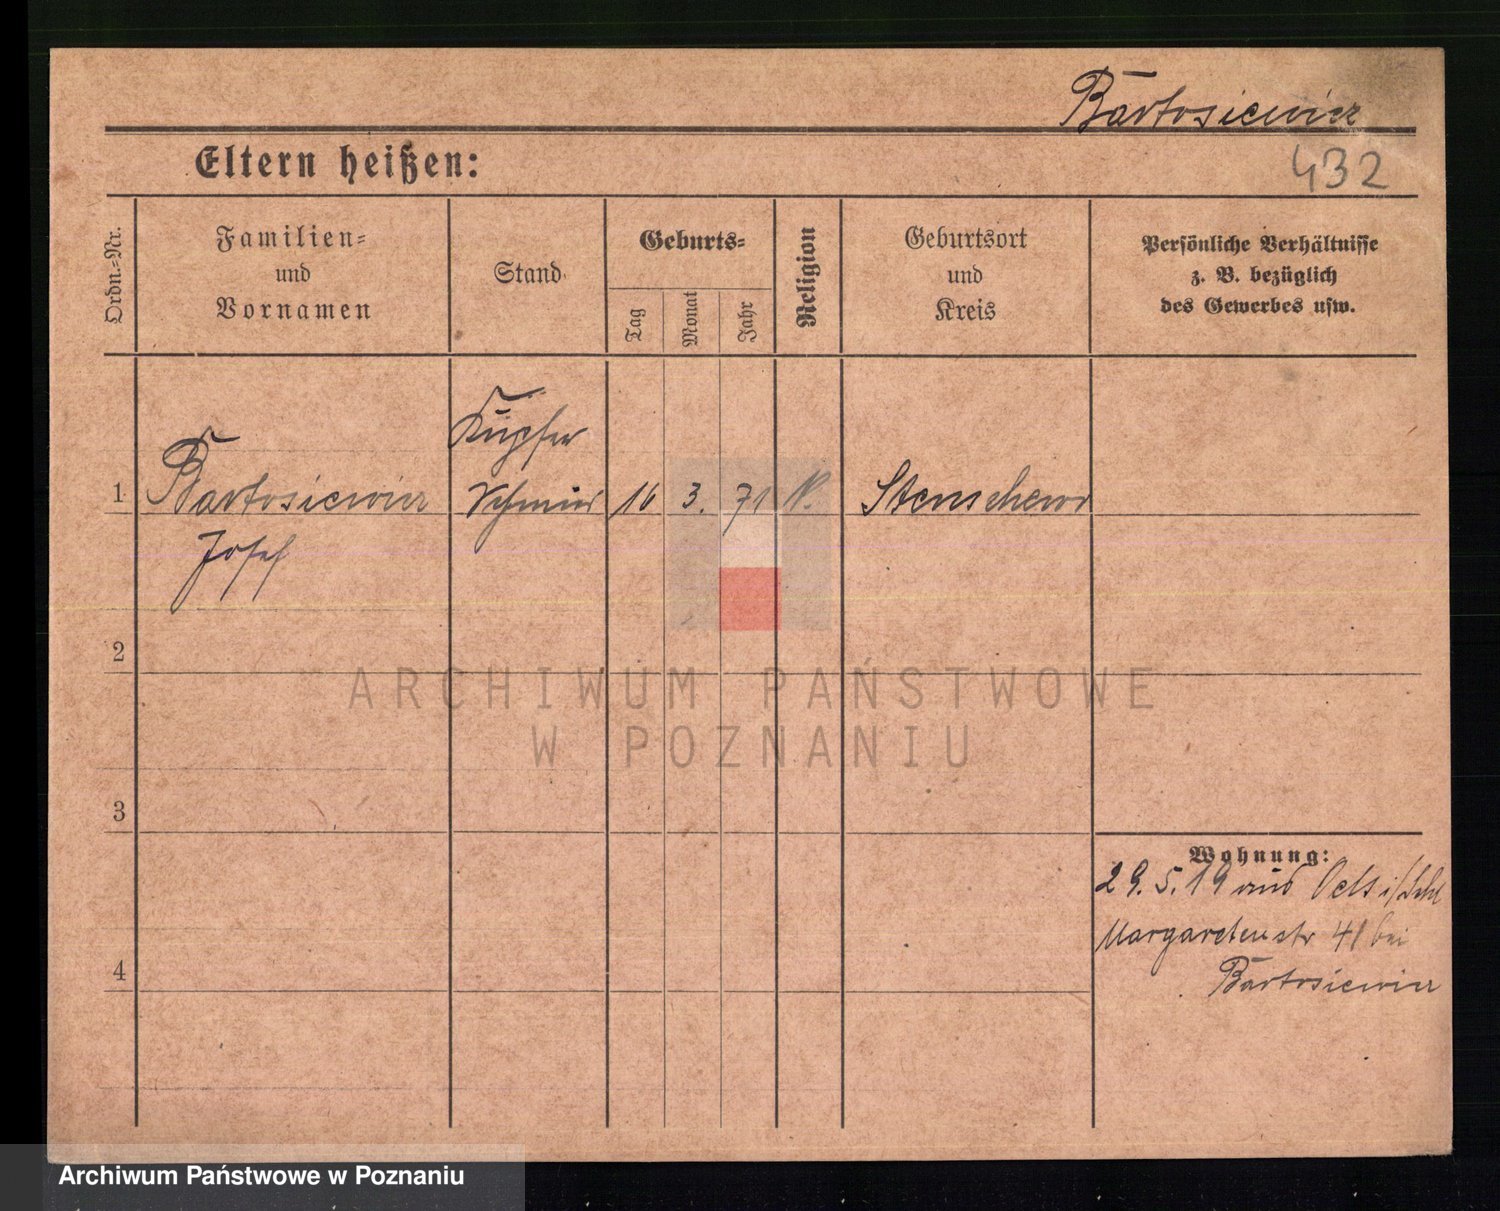 Bartosiewicz
Eltern heißen:
432
Ordn.-Nr.
Familien-
und
Vornamen
Stand
Geburts-
Tag
Monat
Jahr
Religion
Geburtsort
und
Kreis
Persönliche Verhältnisse
z. B. bezüglich
des Gewerbes usw.
Kupfer
1 Bartosiewicz Schmied 16 3. 71 Stenschewo
Josef
2
ARCHIWUM PAŃSTWOWE
W POZNANIU
3
Wohnung:
29.5.19 aus Oels i/Schl
Margaretenstr 41 bei
4
Bartosiewicz
Archiwum Państwowe w Poznaniu